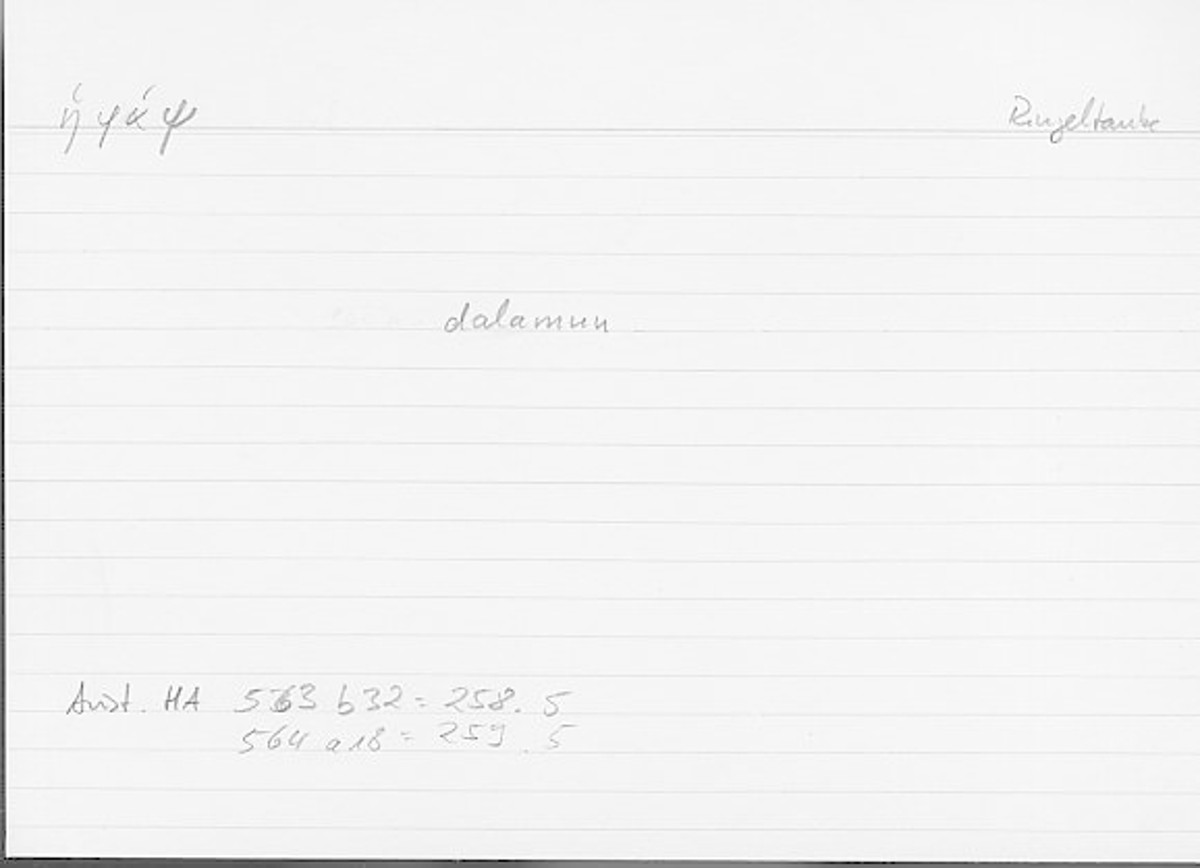 ἡ φάψ Ringeltaube
dalamun
Arist. HA 563 b32 = 258.5
564 a18 = 259.5